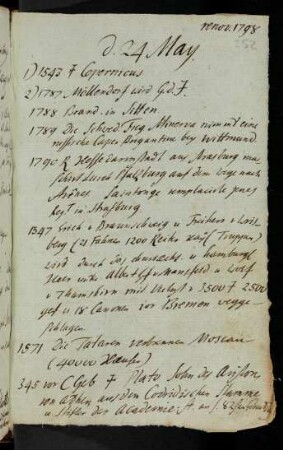 renov. 1798
252
d. 24 May.
1) 1543 † Copernicus
2) 1787 Möllendorf wird G.d.I.
1788 Brand in Sitten
1789 Die Schwed. Freg. Minerva nimmt eine
russische Brigantine bey
1790 R. Hessendarmstadt aus Strasburg ma
schirt durch Pfalzburg auf dem wege nach
Saintonge remplacirte jenes
Regt. in Strasburg
1547 Erich v Braunschweig u Freiherr v
berg (21 Fahnen 1200 Reiter Truppen)
wird durch das u hamburg
Heer unter Albrecht v Mansfeld u
v Thumshirn mit Verlust v 3500 † 2500
gef u 18 Canonen vor Bremen wegge
schlagen
1571 Die Tataren verbrennen Moscau
(40000 Häuser)
348 vor C Geb † Plato Sohn des Ariston
von Athen aus dem Codridischen Stamme
u Stifter der Academie